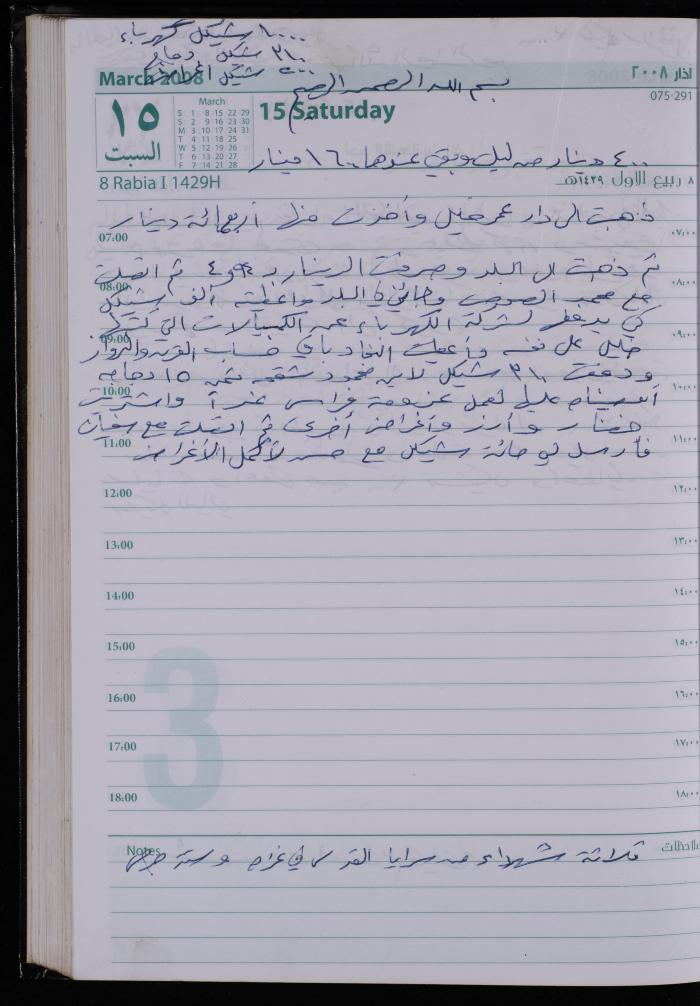 ١٠٠٠ شيكل كهرباء
٣١٠ شيكل دجاج
٥٠٠ شيكل أغراض
March 2008
اذار ٢٠٠٨
بسم الله الرحمن الرحيم
075-291
١٥
السبت
March
S 1 8 15 22 29
S 2 9 16 23 30
M 3 10 17 24 31
T 4 11 18 25
W 5 12 19 26
T 6 13 20 27
F 7 14 21 28
15 Saturday
٤٠٠ دينار من ليلى وبقي عندها ١٦٠٠ دينار
8 Rabia I 1429H
٨ ربيع الاول ١٤٢٩هـ
ذهبت الى دار عمر خليل وأخذت منها أربعمائة دينار
07:00
٠٧:٠٠
ثم ذهبت الى البلد وصرفت الدينار بـ ٤٫٩٤ ثم اتصلت
08:00
٠٨:٠٠
مع صهيب الصوص وجاءني الى البلد وأعطيته ألف شيكل
كي يدفعها لشركة الكهرباء عن الكمبيالات التي كتبها
09:00
٠٩:٠٠
خليل على نفسه وأعطيت
ودفعت ٣١٠ شيكل لابن محمود شقمه ثمن ١٥ دجاجة
10:00
١٠:٠٠
لعمل عزومة فراس غداً واشتريت
خضار وأرز وأغراض أخرى ثم اتصلت مع سفيان
11:00
١١:٠٠
فأرسل لي مائة شيكل مع حسن لأكمل الأغراض
12:00
١٢:٠٠
13:00
١٣:٠٠
14:00
١٤:٠٠
15:00
١٥:٠٠
3
16:00
١٦:٠٠
17:00
١٧:٠٠
18:00
١٨:٠٠
Notes
ملاحظات
ثلاثة شهداء من سرايا القدس في غزة وستة جرحى